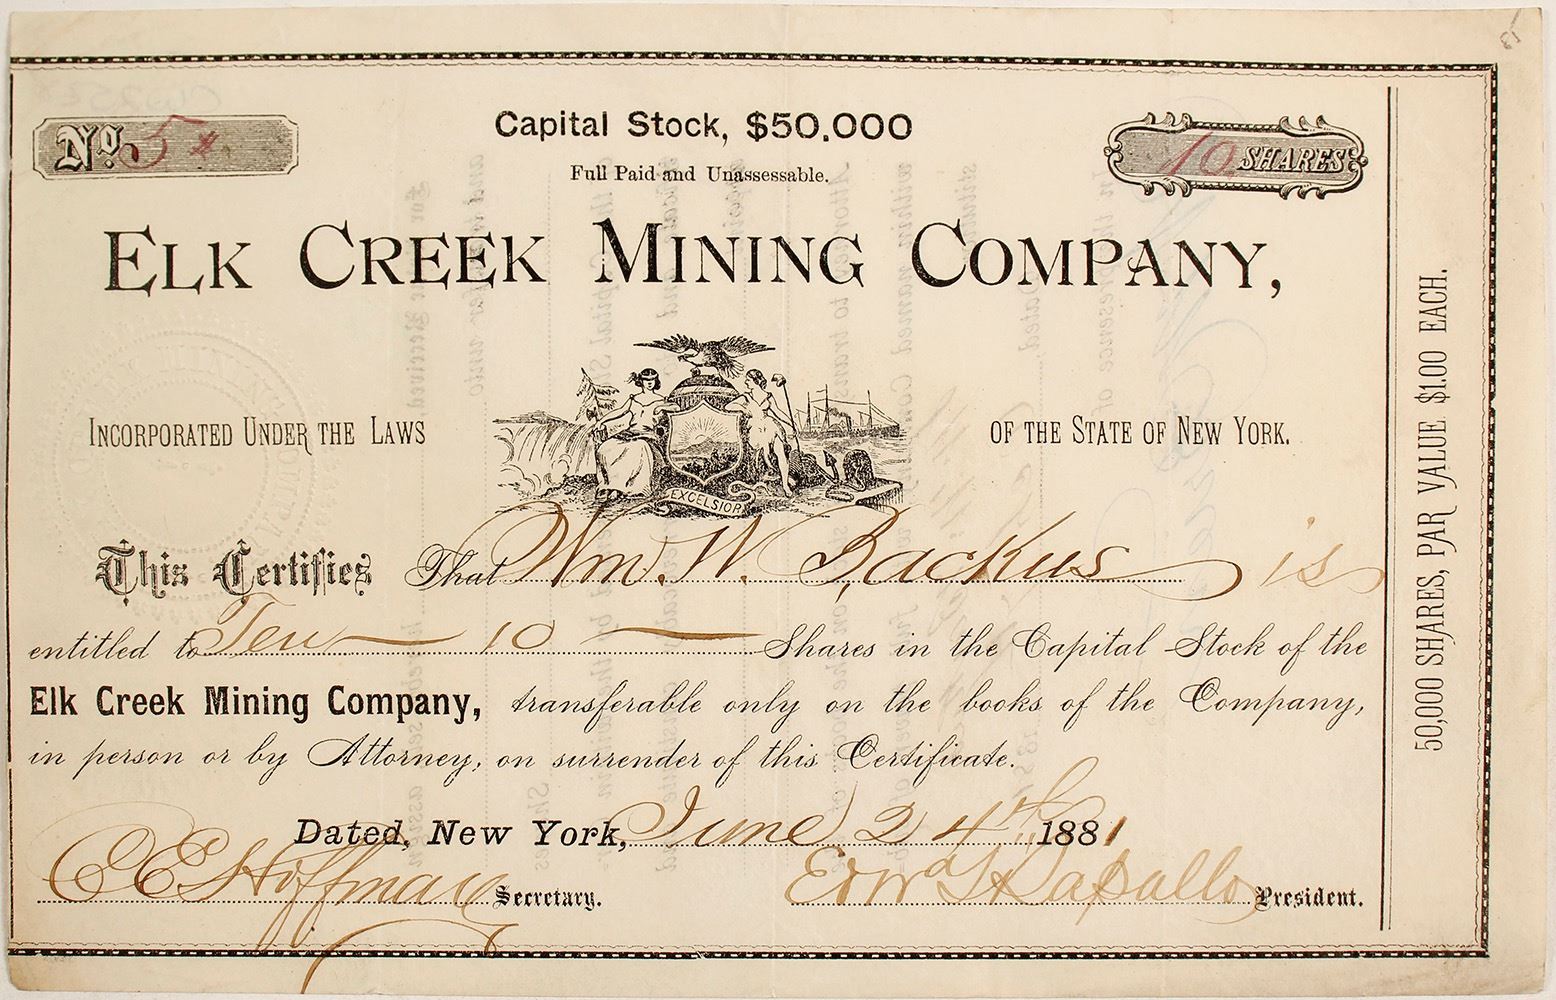 No. 5
Capital Stock, $50.000
10 SHARES
Full Paid and Unassessable.
ELK CREEK MINING COMPANY,
INCORPORATED UNDER THE LAWS OF THE STATE OF NEW YORK.
EXCELSIOR
This Certifies That Wm. W. Backus is
entitled to Ten — 10 — Shares in the Capital Stock of the
Elk Creek Mining Company, transferable only on the books of the Company,
in person or by Attorney, on surrender of this Certificate.
Dated, New York, June 24th 1881
C E Hoffman Secretary. President.
50,000 SHARES, PAR VALUE $1.00 EACH.